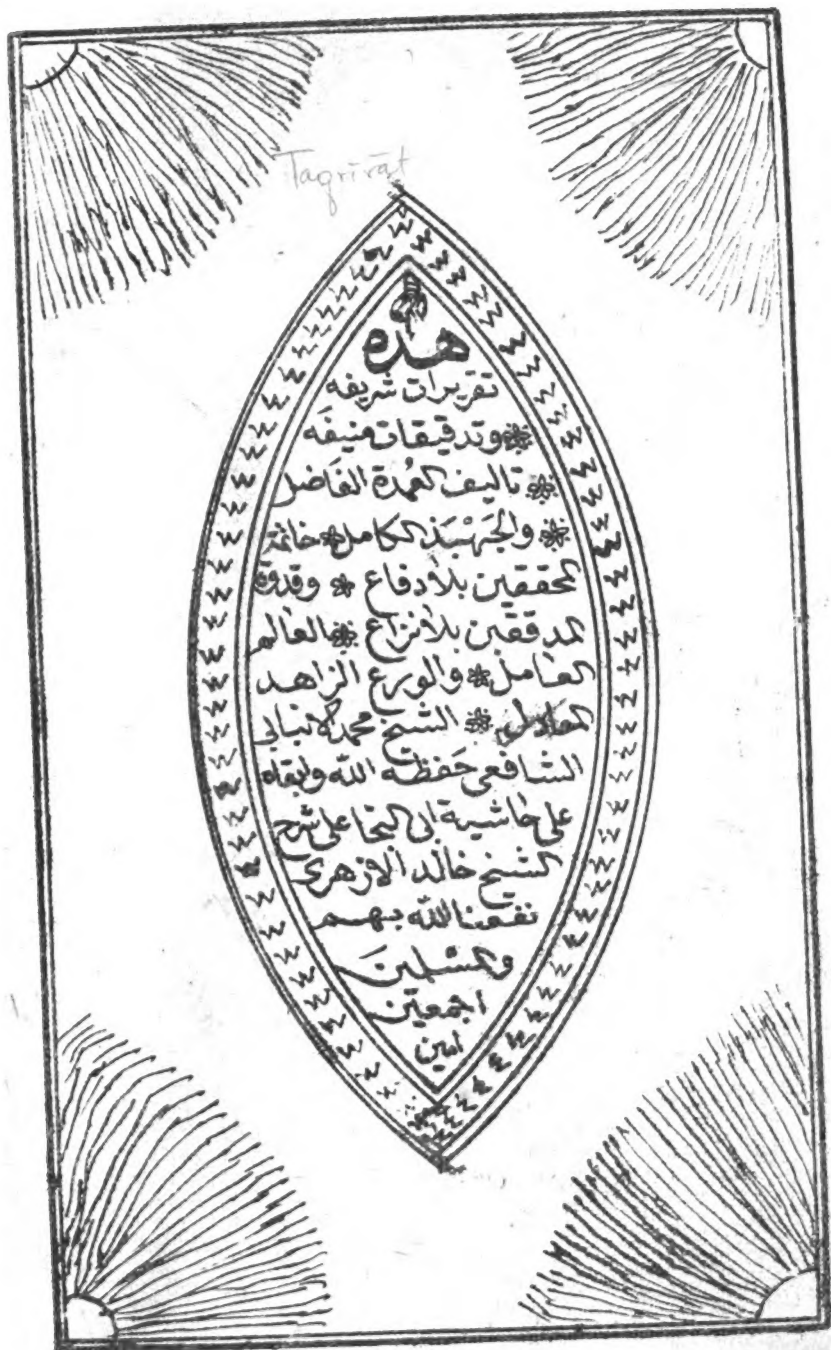 Taqrirat
هذه
تقريرات شريفه
❊ وتدقيقات منيفه
❊ تاليف العمدة الفاضل
❊ والجهبذ الكامل ❊ خاتمة
المحققين بلا دفاع ❊ وقدوة
المدققين بلا نزاع ❊ العالم
العامل ❊ والورع الزاهد
❊ الشيخ محمد الانبابي
الشافعى حفظه الله وابقاه
على حاشية ابى النجا على شرح
الشيخ خالد الازهرى
نفعنا الله بهم
والمسلمين
اجمعين
امين